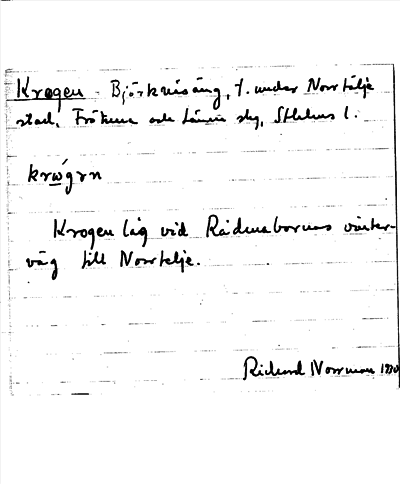 Krogen - Björknäsäng, t. under Norrtälje
stad, Frötuna och Länna skg, Sthlms l.
krωgrn
Krogen låg vid Rådmansbornas vinter-
väg till Norrtelje.
Richard Norrman 1930